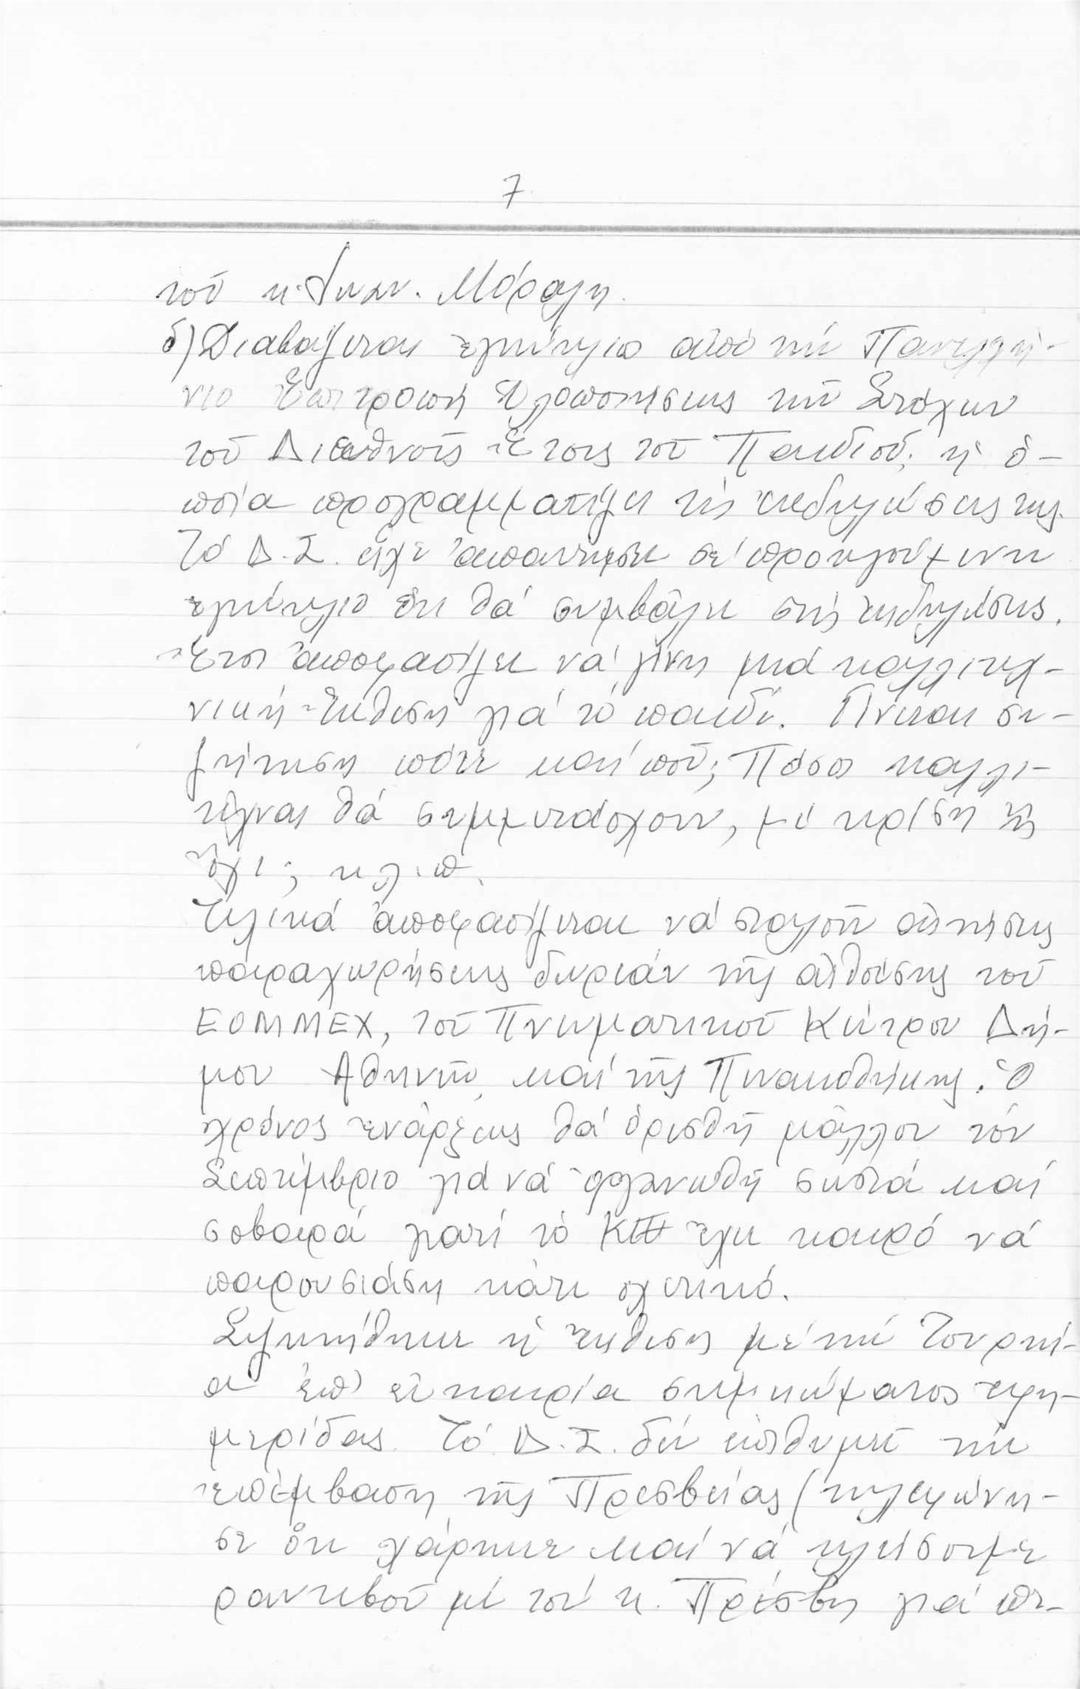 7
τοῦ κ. Ἰωαν. Μόραλη.
δ) Διαβάζεται ἐγκύκλιο ἀπό τήν Πανελλή-
νιο Ἐπιτροπή Ὑλοποιήσεως τῶν Στόχων
τοῦ Διεθνοῦς Ἔτους τοῦ Παιδιοῦ, ἡ ὁ-
ποία προγραμματίζει τίς ἐκδηλώσεις της.
Τό Δ.Σ. εἶχε ἀπαντήσει σέ προηγούμενη
ἐγκύκλιο ὅτι θά συμβάλη στίς ἐκδηλώσεις.
Ἔτσι ἀποφασίζει νά γίνη μιά καλλιτεχ-
νική Ἔκθεση γιά τό παιδί. Γίνεται συ-
ζήτηση πότε καί ποῦ; Πόσοι καλλι-
τέχναι θά συμμετάσχουν, μέ κρίση ἤ
ὄχι; κ.λ.π.
Τελικά ἀποφασίζεται νά σταλοῦν αἰτήσεις
παραχωρήσεως δωρεάν τῆς αἰθούσης τοῦ
ΕΟΜΜΕΧ, τοῦ Πνευματικοῦ Κέντρου Δή-
μου Ἀθηνῶν, καί τῆς Πινακοθήκης. Ὁ
χρόνος ἐνάρξεως θά ὁρισθῆ μᾶλλον τόν
Σεπτέμβριο γιά νά ὀργανωθῆ σωστά καί
σοβαρά γιατί τό ΚΕΕ ἔχει καιρό νά
παρουσιάση κάτι σχετικό.
Συζητήθηκε ἡ ἔκθεση μέ τήν Τουρκί-
α ἐπ' εὐκαιρία σημειώματος ἐφη-
μερίδας. Τό Δ.Σ. δέν ἐπιθυμεῖ τήν
ἐπέμβαση τῆς Πρεσβείας (τηλεφώνη-
σε ὅτι χάρηκε καί νά κλείσουμε
ραντεβοῦ μέ τόν κ. Πρέσβη γιά πε-